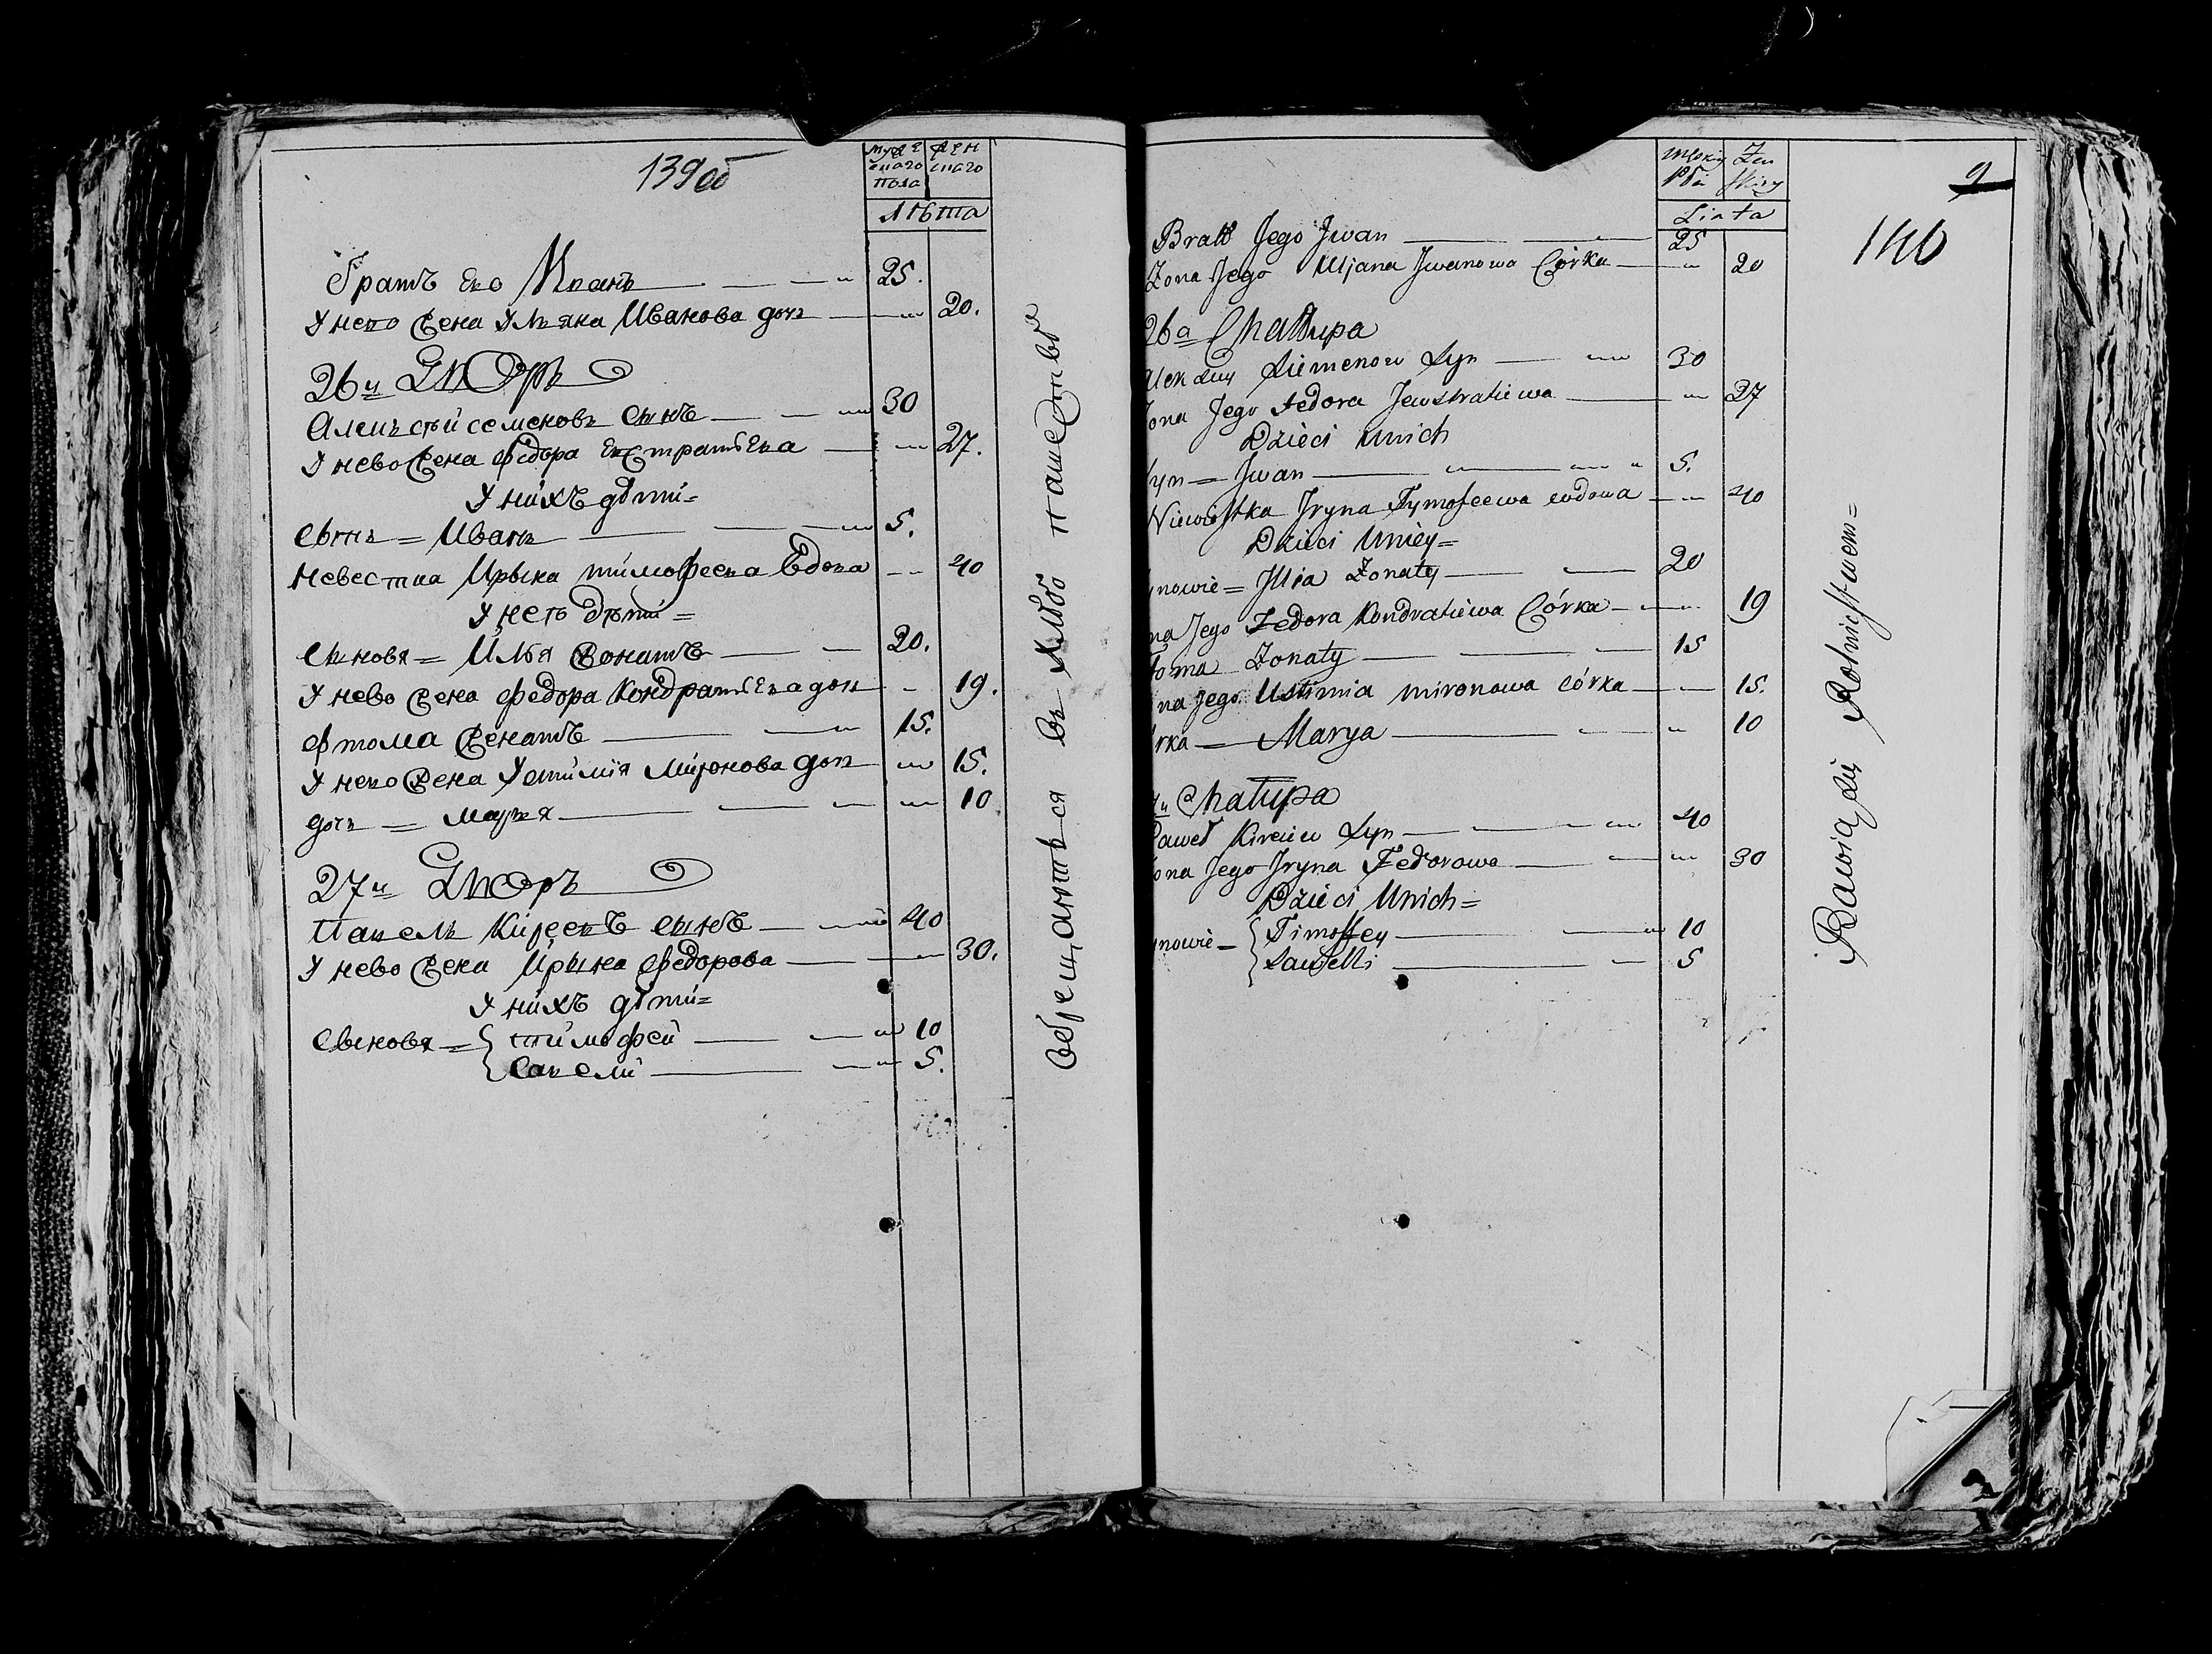 139об
мужескаго пола
женскаго
лѣта
братъ ево Иванъ 25.
У нево жена Ульяна Иванова дочь 20.
26й Дворъ
Алексѣй семеновъ сынъ 30
У нево жена федора Евстратьева 27.
У нихъ дѣти=
сынъ = Иванъ 5.
Невестка Ирына тимофеева вдова 40
У неѣ дѣти=
сыновя = Илья женатъ 20.
У нево жена федора Кондратьева дочь 19.
фтома женатъ 15.
У нево жена Устимія Миронова дочь 15.
дочь = марья 10
27й Дворъ
Павелъ Киреевъ сынъ 40
У нево жена Ирына федорова 30.
У нихъ дѣти=
сыновя = { тимофей 10
{ савели 5.
Обрещаются въ Хлѣбопашествѣ
męskiey płci
Żenskiey
Liata
9
140
Bratt Jego Jwan 25
Żona Jego Uljana Jwanowa Córka 20
26a Chałupa
Alexuy Siemenow Syn 30
ona Jego Fedora Jewstratiewa 27
Dzieci Unich
yn = Jwan 5.
Niewiestka Jryna Tymofeewa wdowa 40
Dzieci Uniey=
ynowie = Jllia Żonaty 20
na Jego Fedora Kondratiewa Córka 19
toma Żonaty 15
na Jego Ustimia mironowa córka 15.
rka = Marya 10
Chałupa
Paweł Kireiew Syn 40
ona Jego Jryna Fedorowa 30
Dzieci Unich=
ynowie = { Timoffey 10
{ Sawelli 5
Bawią się Rolnictwem=